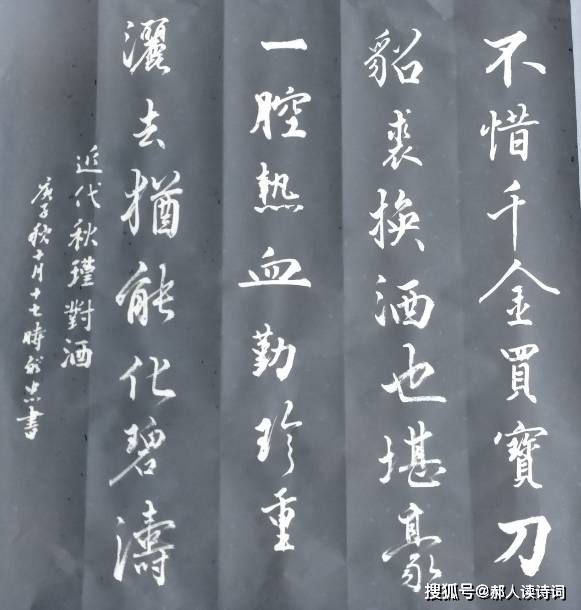 不惜千金買寶刀
貂裘換酒也堪豪
一腔熱血勤珍重
灑去猶能化碧濤
近代秋瑾對酒
庚子秋十月十七時書
搜狐号@郝人读诗词